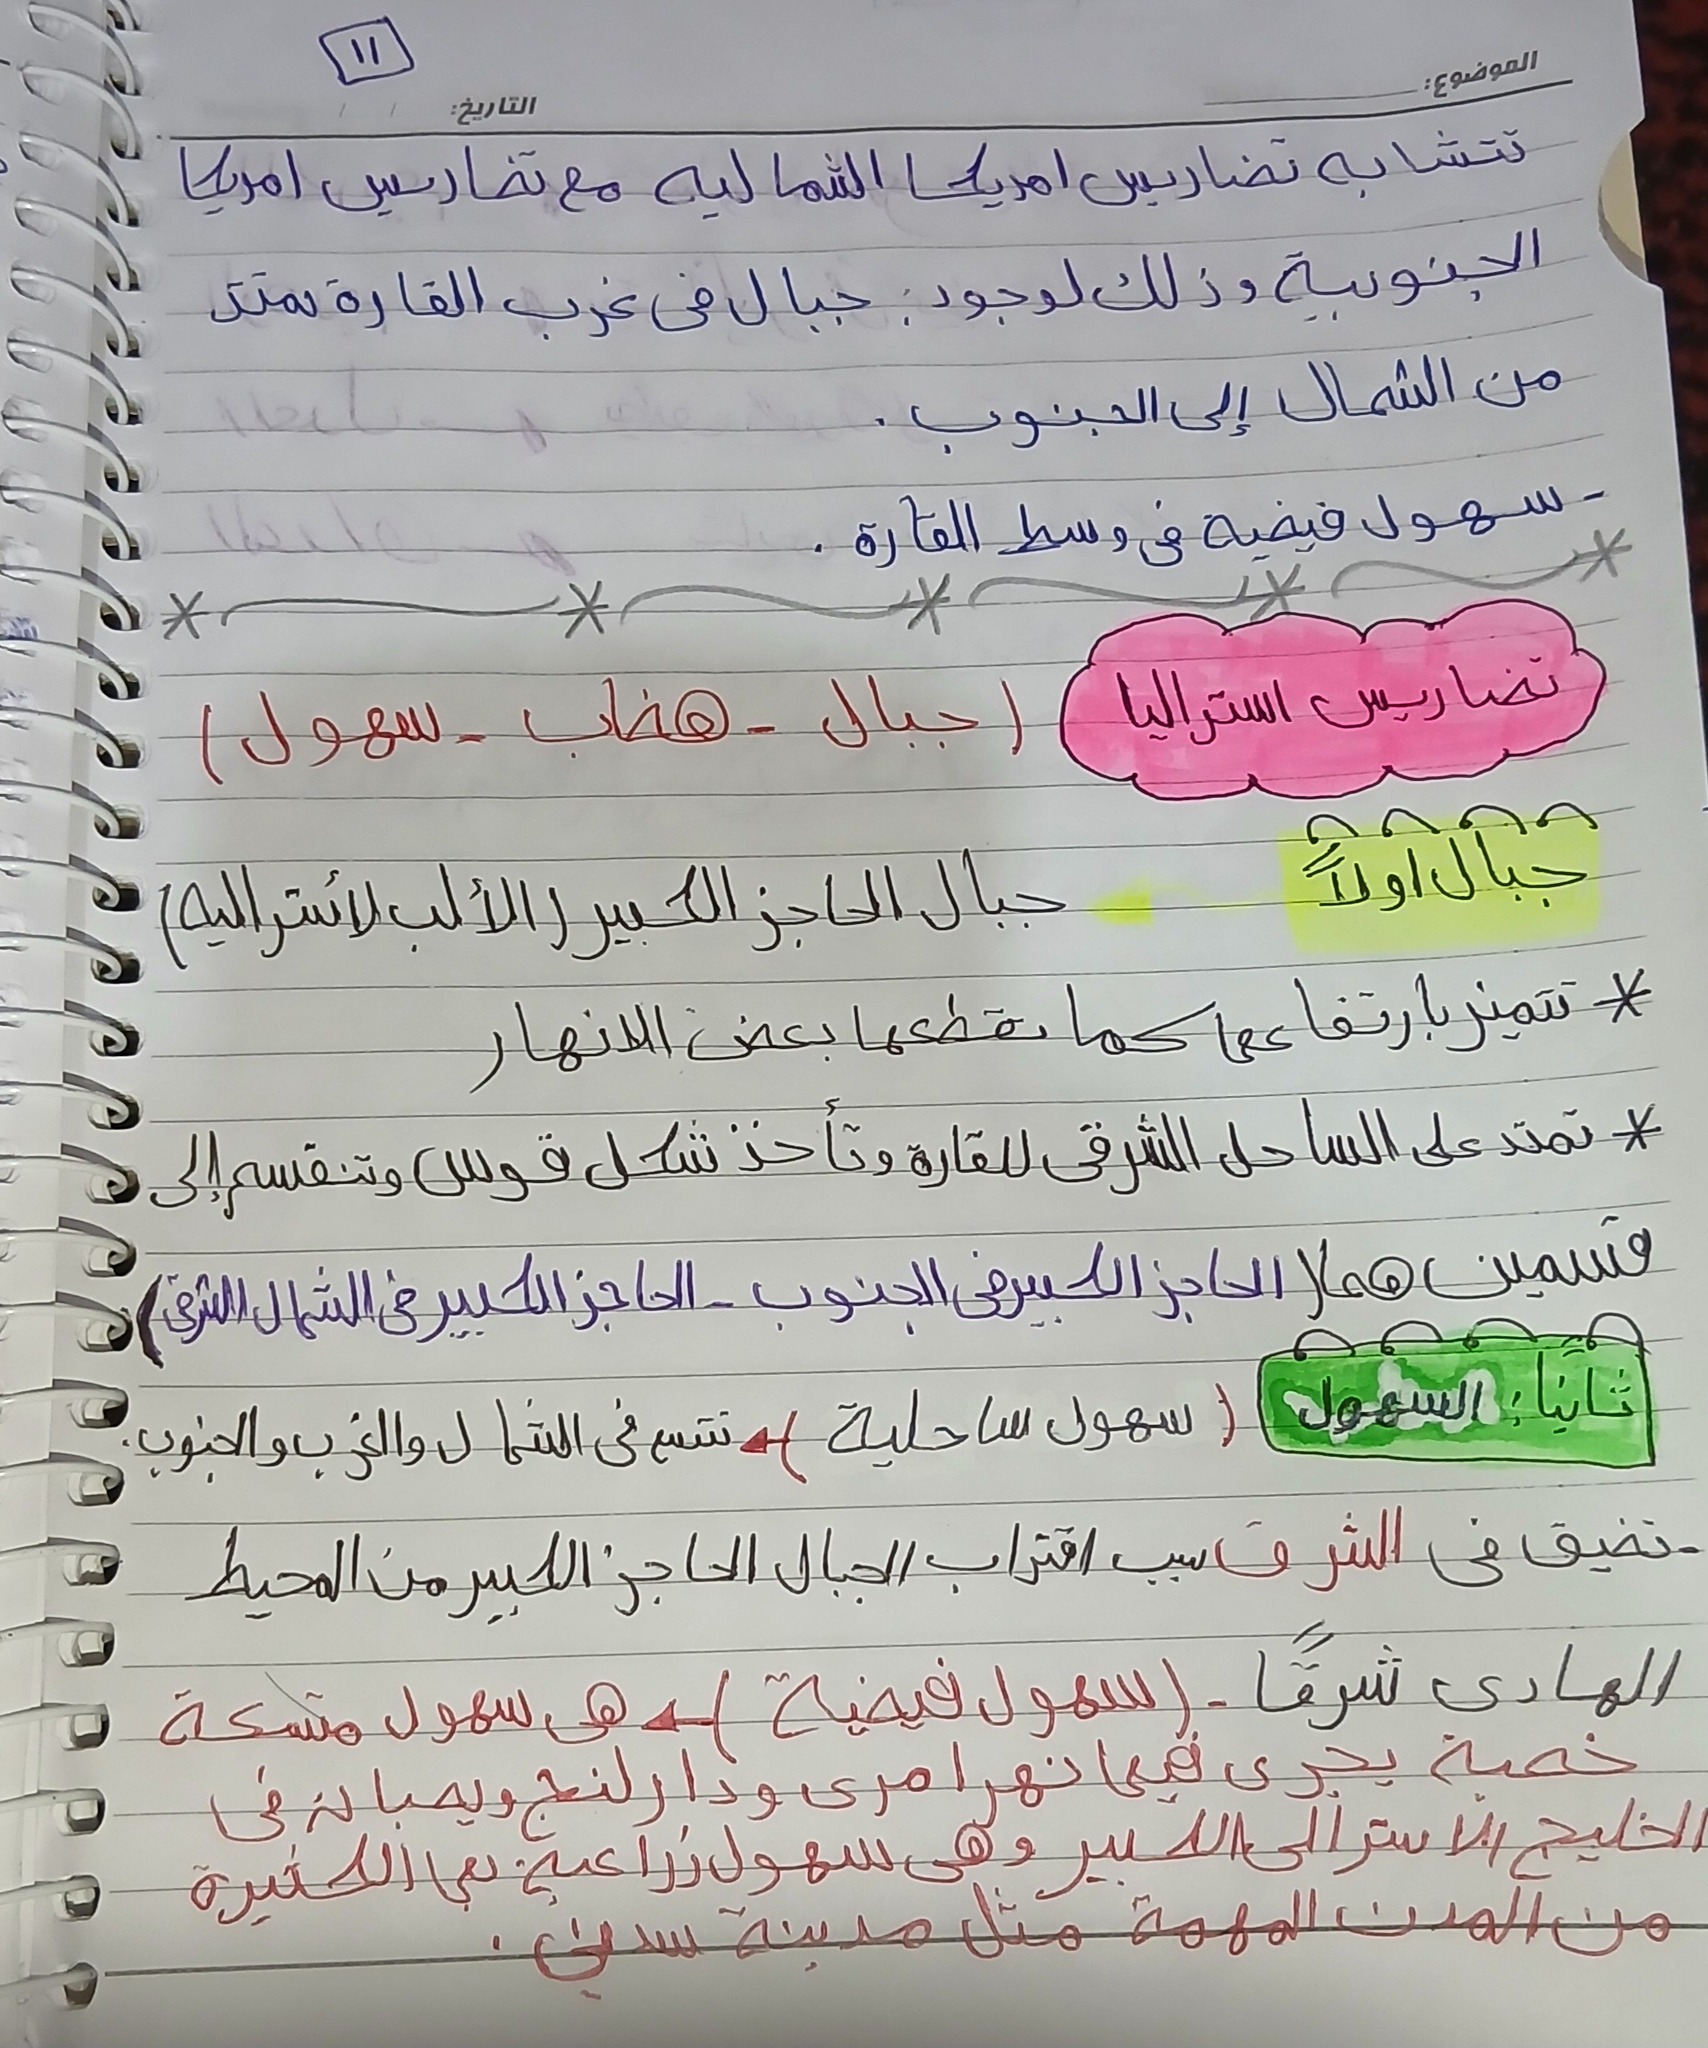 ١١
الموضوع:
التاريخ: / /
تتشابه تضاريس امريكا الشماليه مع تضاريس امريكا
الجنوبية وذلك لوجود: جبال فى غرب القارة تمتد
من الشمال إلى الجنوب.
- سهول فيضية فى وسط القارة.
تضاريس استراليا (جبال - هضاب - سهول)
جبال اولاً جبال الحاجز الكبير (الألب لأستراليه)
* تتميز بارتفاعها كما تقطعها بعض الانهار
* تمتد على الساحل الشرقى للقارة وتأخذ شكل قوس وتنقسم إلى
قسمين هما (الحاجز الكبير فى الجنوب - الحاجز الكبير فى الشمال الشرقى)
ثانيًا: السهول (سهول ساحلية) تتسع فى الشمال والغرب والجنوب.
- تضيق فى الشرق سبب اقتراب الجبال الحاجز الكبير من المحيط
الهادى شرقًا - (سهول فيضية) هى سهول متسعة
خصبة يجرى فيها نهرا مرى ودارلنج ويصبان فى
الخليج الاسترالى الكبير وهى سهول زراعية بها الكثيرة
من المدن المهمة مثل مدينة سدنى.